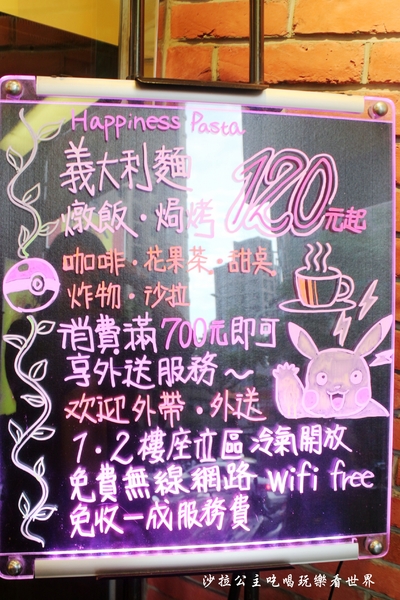 Happiness Pasta
義大利麵
燉飯·焗烤 120元起
咖啡·花果茶·甜桌
炸物·沙拉
消費滿700元即可
享外送服務~
欢迎外帶·外送
1·2樓座位區冷氣開放
免費無線網路 wifi free
免收一成服務費
沙拉公主吃喝玩樂看世界